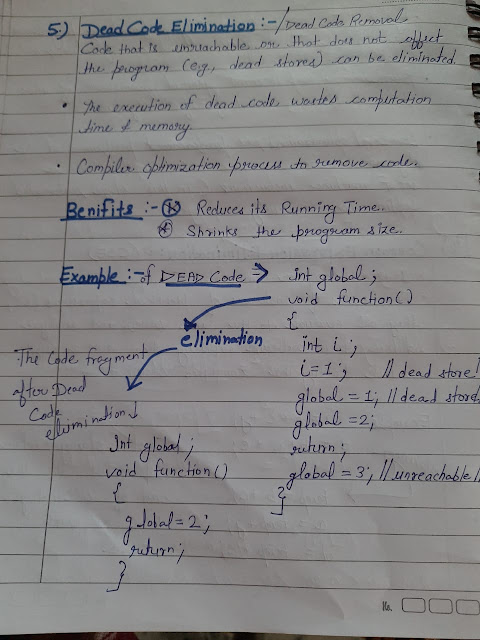 5.) Dead Code Elimination :-/Dead Code Removal
Code that is unreachable or that does not affect
the program (e.g, dead stores) can be eliminated.
• The execution of dead code, wastes computation
time & memory.
• Compiler optimization process to remove code.
Benifits :- * Reduces its Running Time.
* Shrinks the program size.
Example :- of DEAD Code →
elimination
int global;
void function()
{
int i ;
i=1 ; // dead store!
global = 1; // dead store
global = 2;
return;
global = 3; // unreachable //
}
The Code fragment
after Dead
Code
elimination ↓
Int global;
void function()
{
global = 2;
return;
}